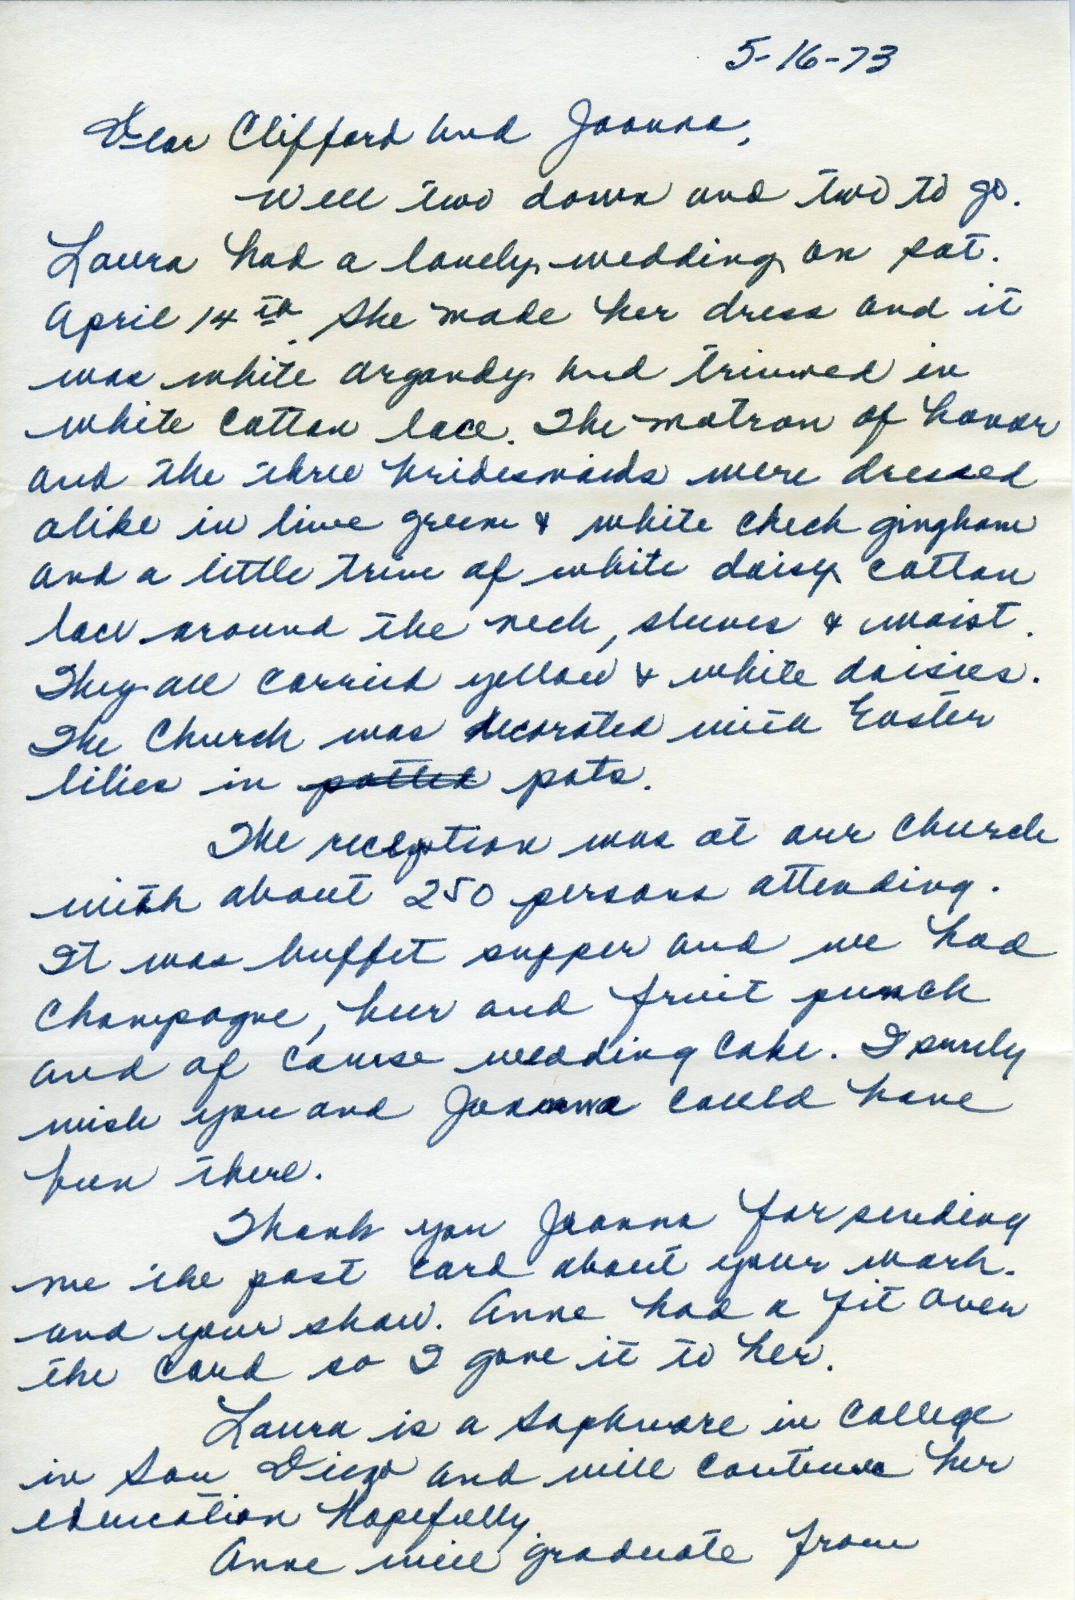 5-16-73
Dear Clifford and Joanna,
Well two down and two to go.
Laura had a lovely wedding on Sat.
April 14th. She made her dress and it
was white organdy and trimmed in
white cotton lace. The matron of honor
and the three bridesmaids were dressed
alike in lime green & white check gingham
and a little trim of white daisy cotton
lace around the neck, sleeves & waist.
They all carried yellow & white daisies.
The Church was decorated with Easter
lilies in potted pots.
The reception was at our Church
with about 250 persons attending.
It was buffet supper and we had
Champagne, beer and fruit punch
and of course wedding cake. I surely
wish you and Joanna could have
been there.
Thank you Joanna for sending
me the post card about your work.
and your show. Anne had a fit over
the card so I gave it to her.
Laura is a Sophmore in College
in San Diego and will continue her
education hopefully.
Anne will graduate from